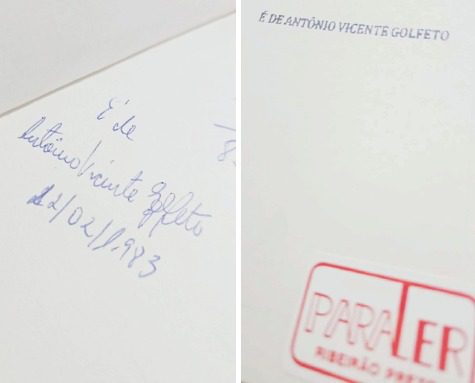 É de
Antônio Vicente Golfeto
22/02/1.983
É DE ANTÔNIO VICENTE GOLFETO
PARALER
RIBEIRÃO